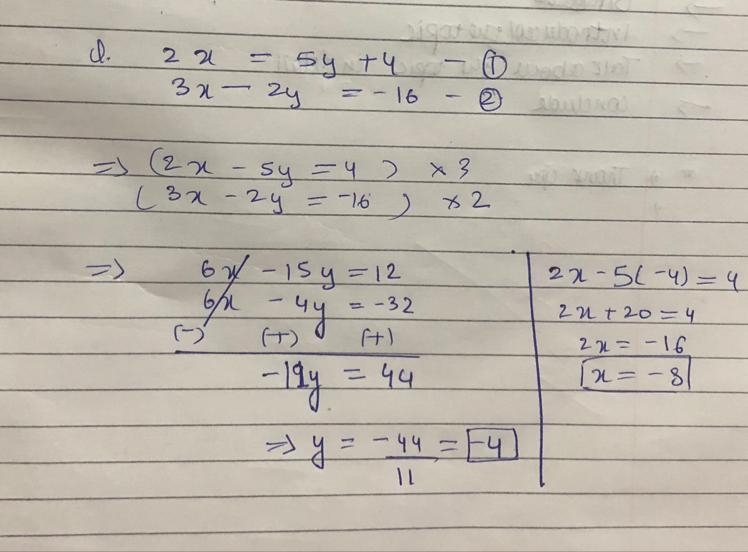 d. 2x = 5y + 4 — ①
3x — 2y = -16 — ②
⇒ (2x - 5y = 4) × 3
(3x - 2y = -16) × 2
⇒ 6x - 15y = 12
6x - 4y = -32
(-) (+) (+)
-11y = 44
⇒ y = -44/11 = -4
2x - 5(-4) = 4
2x + 20 = 4
2x = -16
x = -8